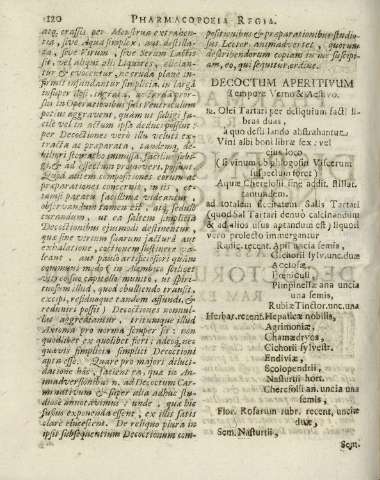 120 PHARMACOPOEIA REGIA.
atq, crassis per Menstrua extrahen-
tia, sive Aqua simplex, aut destilla-
ta, sive Vinum, sive Serum Lactis
sit, vel aliqui alii Liquores, elician-
tur & evocentur, ne cruda plane in-
super illi, ingrata, acerba pror-
sus in Operationibus suis Ventriculum
potius aggravent, quam ut subigi fa-
cile vel in actum ipsa deduci possint:
per Decoctiones verò illa veluti ex-
tracta ac praeparata, tandem,
gè & ad effectum produci possent.
Quod adeo in compositiones earum &
praeparationes concernit, in iis, et-
iamsi parata facillimè videantur,
observandum tamen est, atq, sedulò
curandum, ut ea saltem simplicia
Decoctionibus ejusmodi destinentur,
quae sine virium suarum jacturâ aut
exhalatione, coctionem sustinere va-
leant, aut paulò artificiosiori quàm
communi modo (in Alembico scilicet
vitro cujus capitello munito, ut spiri-
tuosum illud, quod ebulliendo transit,
excipi, residuoque tandem affundi, &
reduniri possit) Decoctiones nonnul-
las aggrediantur, tritumque illud
Axioma pro norma semper sit: non
quodlibet ex quolibet fieri; adeoq, nec
quamvis simplicia simplici Decoctioni
apta esse. Quare pro majori diluci-
datione hâc, faciunt ea, quae in Ani-
madversionibus n. ad Decoctum Car-
minativum & super alia adhuc stu-
diosè annotavimus: unde, quae hîc
fusius exponenda essent, ex illis satis
clarè elucescent. De reliquo plura in
ipsis subsequentium Decoctionum com-
positionibus & praeparationibus studio-
sus Lector animadvertet, quorum
describendorum copiam in nos suscipi-
am, eo, qui sequitur, ordine.
DECOCTUM APERITIVUM
Tempore Verno & Aestivo.
℞. Olei Tartari per deliquium facti li-
bras duas,
à quo dessi Iando abstrahantur.
Vini albi boni librae sex: vel
ejus loco
(si vinum ob phlogosin Viscerum
suspectum foret)
Aquae Cherefolii sine addit. stillat.
tantundem.
ad totalem siccitatem Salis Tartari
(quod Sal Tartari denuò calcinandum
& ad alios usus aptandum est) liquori
verò prolecto immergantur
Radic. recent. Apii uncia semis,
Cichorii sylv. unc. duae
Acetosae,
Foeniculi
Pimpinellae ana uncia
una semis,
Rubiae Tinctor. unc. una
Herbar. recent. Hepaticae nobilis,
Agrimoniae,
Chamaedryos,
Cichorii sylvestr.
Endiviae,
Scolopendrii,
Nasturtii hort.
Cherefolii an. uncia una
semis,
Flor. Rosarum rubr. recent, unciae
duae,
Sem. Nasturtii,
Sem.